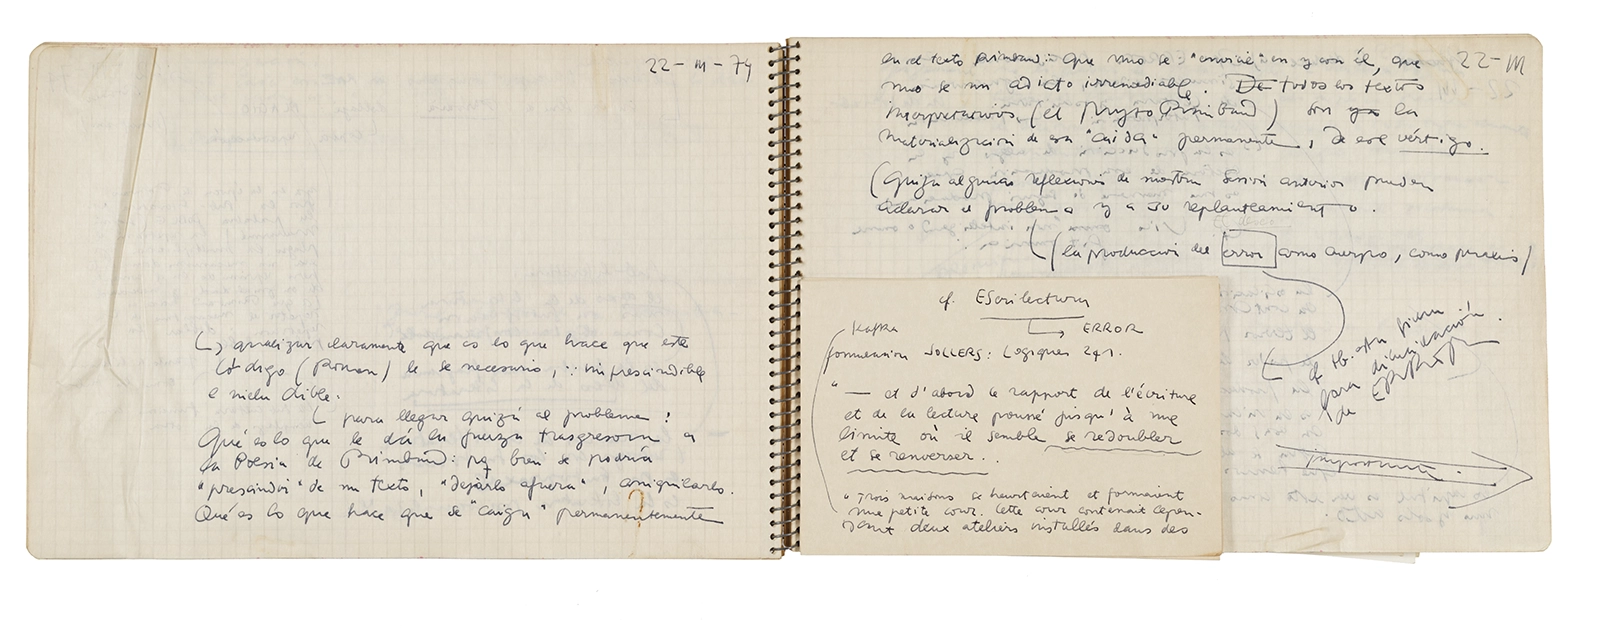 22-III-74
↳ analizar claramente que es lo que hace que este
código (Roman) le se necesario, ∵ imprescindible
e ineludible.
↳ para llegar quizá al problema:
Qué es lo que le dá la fuerza trasgresora a
la Poesía de Rimbaud: pq bien se podría
"prescindir" de su texto, "dejarlo afuera", aniquilarlo.
Qué es lo que hace que se "caiga" permanentemente
22-III
en el texto Rimbaud: Que uno se "envicie" en y con él, que
uno se un adicto irremediable. De todos los textos
interpretativos (el Mito Rimbaud) son la
materialización de esa "caída" permanente, de ese vértigo.
(Quizá algunas reflexiones de nuestra sesión anterior puedan
aclarar el problema y a su replanteamiento.
(la producción del error como cuerpo, como praxis)
cf. EScrilectura
Kafka ↳ ERROR
formulación SOLLERS: Logiques 241.
"— et d'abord le rapport de l'écriture
et de la lecture poussé jusqu'à une
limite où il semble se redoubler
et se renverser..
"Trois maisons se heurtaient et formaient
une petite cour. Cette cour contenait cepen-
dant deux ateliers installés dans des
cf tb. otra
para dilucidación.
de